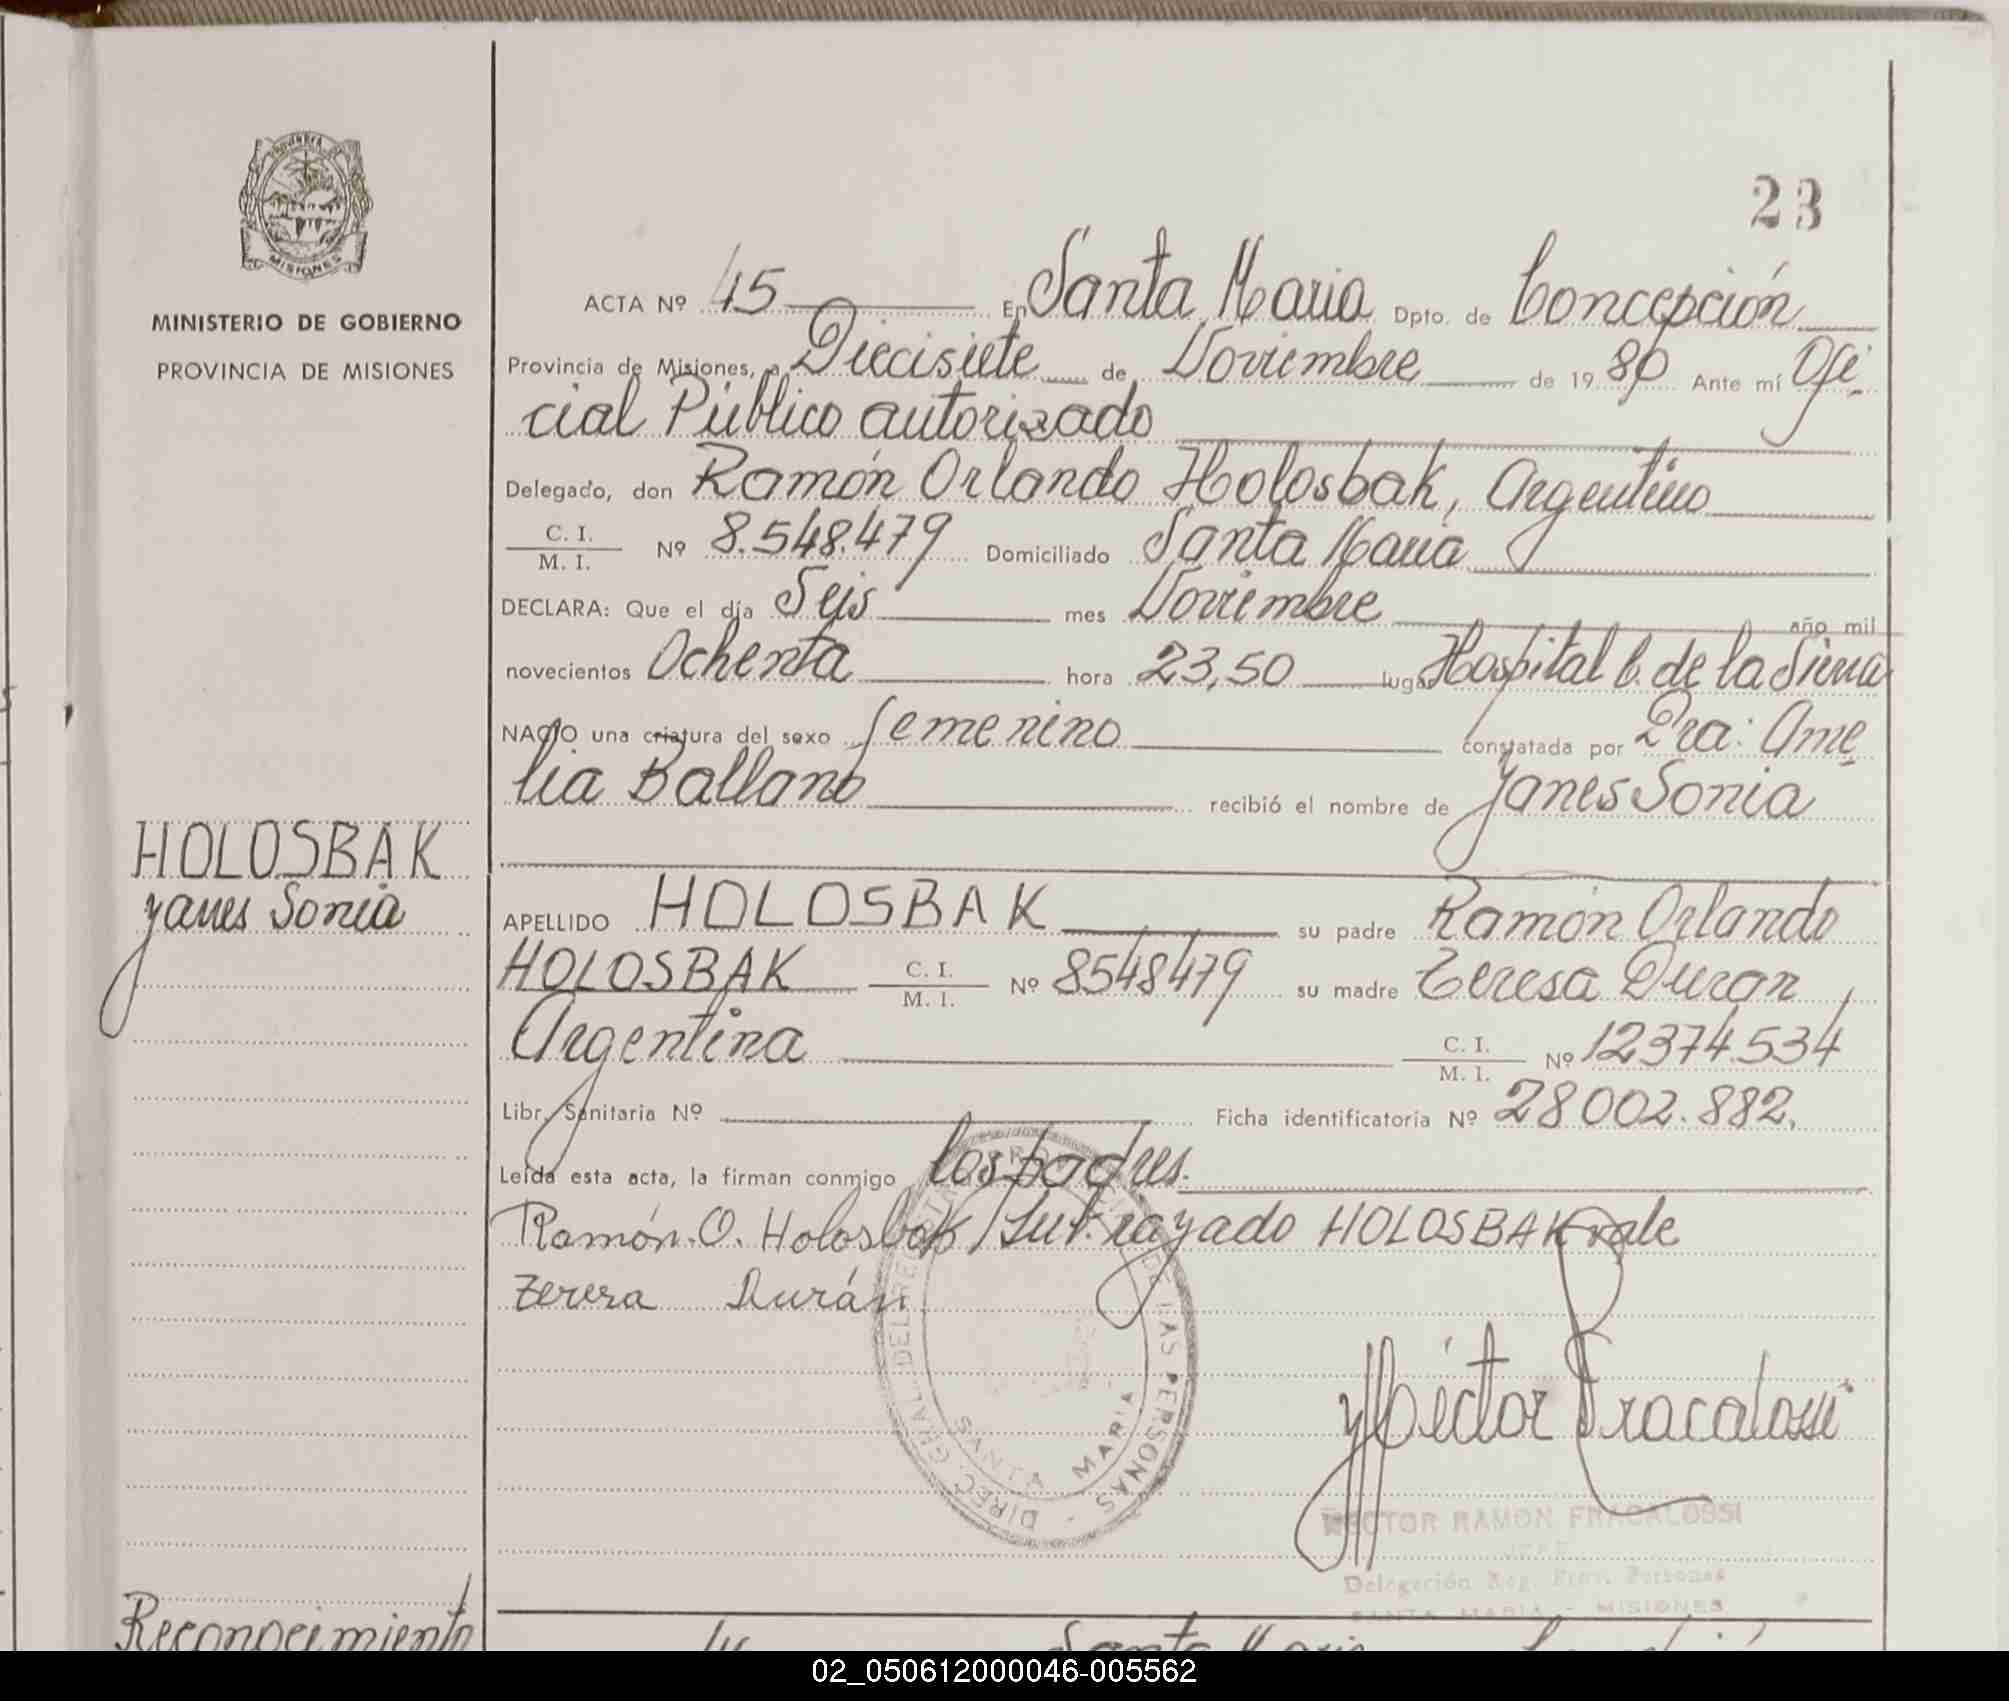 23
MISIONES
MINISTERIO DE GOBIERNO
PROVINCIA DE MISIONES
ACTA Nº 45 En Santa Maria Dpto. de Concepción
Provincia de Misiones, a Diecisiete de Noviembre de 1980 Ante mí Ofi
cial Público autorizado
Delegado, don Ramón Orlando Holosbak, Argentino
C. I.
M. I. Nº 8.548.479 Domiciliado Santa Maria
DECLARA: Que el día Seis mes Noviembre año mil
novecientos Ochenta hora 23,50 lugar Hospital C. de la Sierra
NACIO una criatura del sexo femenino constatada por Dra: Ame
lia Ballano recibió el nombre de Yanes Sonia
HOLOSBAK
Yanes Sonia
APELLIDO HOLOSBAK su padre Ramón Orlando
HOLOSBAK C. I.
M. I. Nº 8548479 su madre Teresa Duran
Argentina C. I.
M. I. Nº 12374.534
Libr. Sanitaria Nº Ficha identificatoria Nº 28002.882.
Leída esta acta, la firman conmigo los padres.
Ramón. O. Holosbak / Subrayado HOLOSBAK vale
Teresa Durán
DIREC. GRAL. DEL REG. DE LAS PERSONAS
SANTA MARIA
Héctor Fracalossi
HECTOR RAMON FRACALOSSI
JEFE
Delegación Reg. Prov. Personas
SANTA MARIA - MISIONES
Reconocimiento
02_050612000046-005562